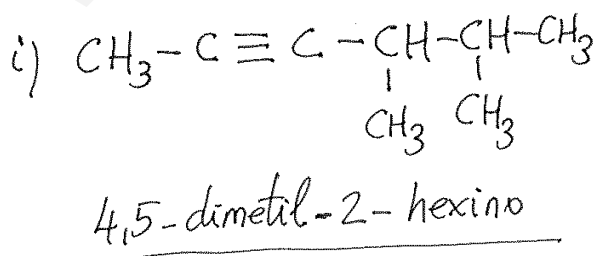 i) CH3-C≡C-CH-CH-CH3
CH3 CH3
4,5-dimetil-2-hexino